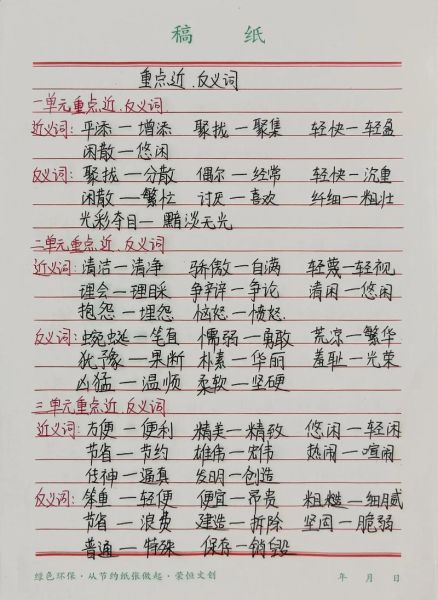 稿 纸
重点近、反义词
一单元重点近、反义词
近义词: 平添—增添 聚拢—聚集 轻快—轻盈
闲散—悠闲
反义词: 聚拢—分散 偶尔—经常 轻快—沉重
闲散—繁忙 讨厌—喜欢 纤细—粗壮
光彩夺目—黯淡无光
二单元重点近、反义词
近义词: 清洁—清净 骄傲—自满 轻蔑—轻视
理会—理睬 争辩—争论 清闲—悠闲
抱怨—埋怨 恼怒—愤怒
反义词: 蜿蜒—笔直 懦弱—勇敢 荒凉—繁华
犹豫—果断 朴素—华丽 羞耻—光荣
凶猛—温顺 柔软—坚硬
三单元重点近、反义词
近义词: 方便—便利 精美—精致 悠闲—轻闲
节省—节约 雄伟—宏伟 热闹—喧闹
传神—逼真 发明—创造
反义词: 笨重—轻便 便宜—昂贵 粗糙—细腻
节省—浪费 建造—拆除 坚固—脆弱
普通—特殊 保存—销毁
绿色环保·从节约纸张做起·荣恒文创 年 月 日